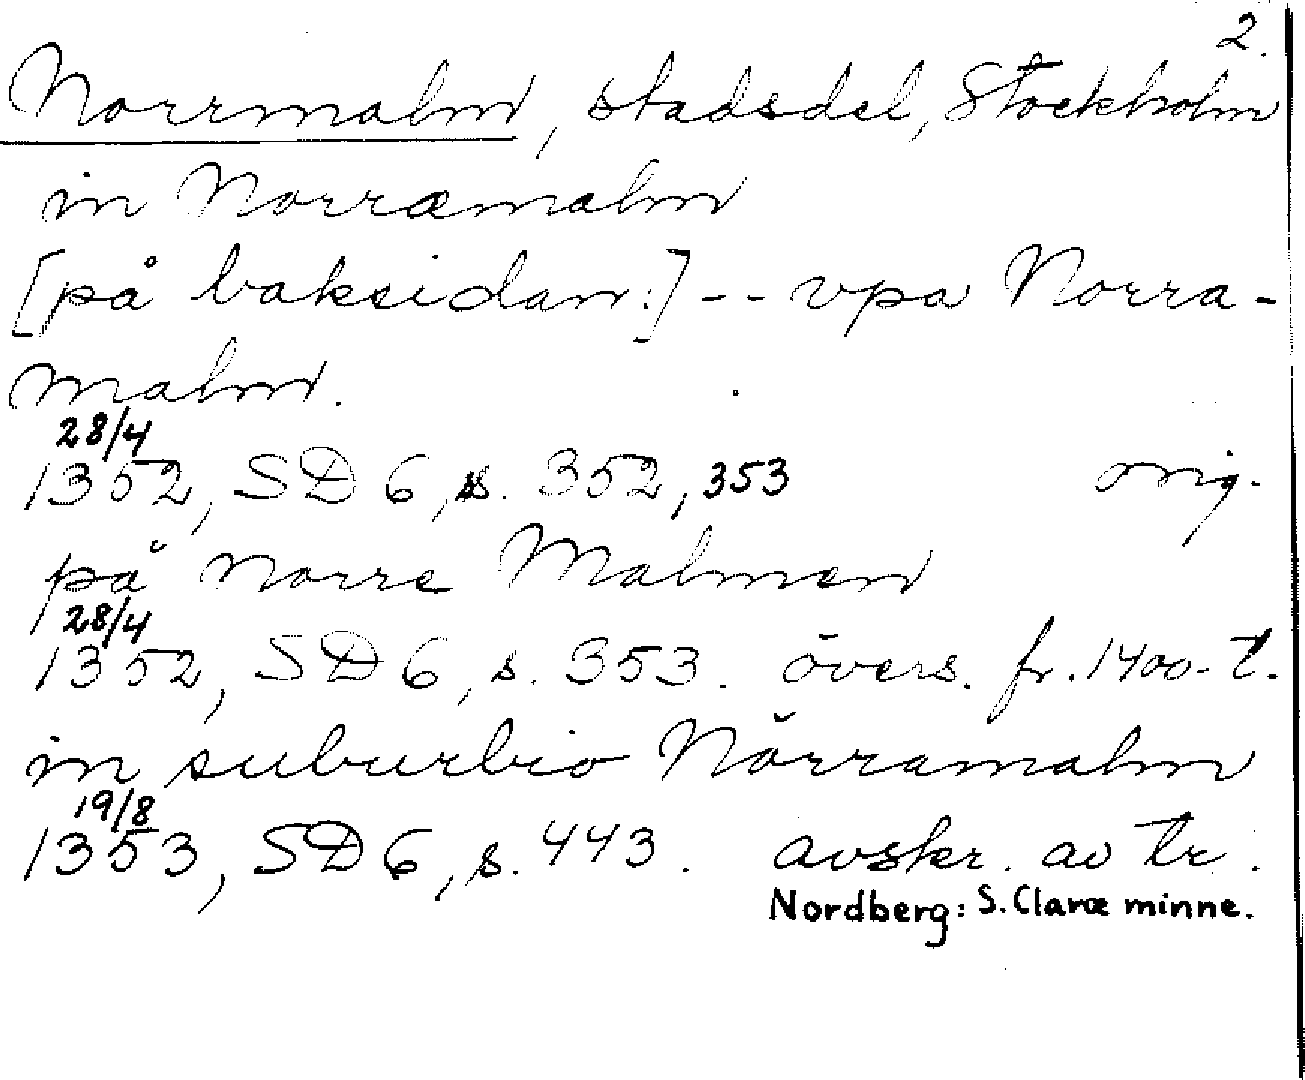 2.
Norrmalm, stadsdel, Stockholm
in Norræmalm
[på baksidan:] -- vpa Norra-
malm.
28/4
1352, SD 6, s. 352, 353 orig.
på norre Malmen
28/4
1352, SD 6, s. 353. övers. fr. 1400-t.
in suburbio Nörramalm
19/8
1353, SD 6, s. 443. avskr. av tr.
Nordberg: S. Claræ minne.